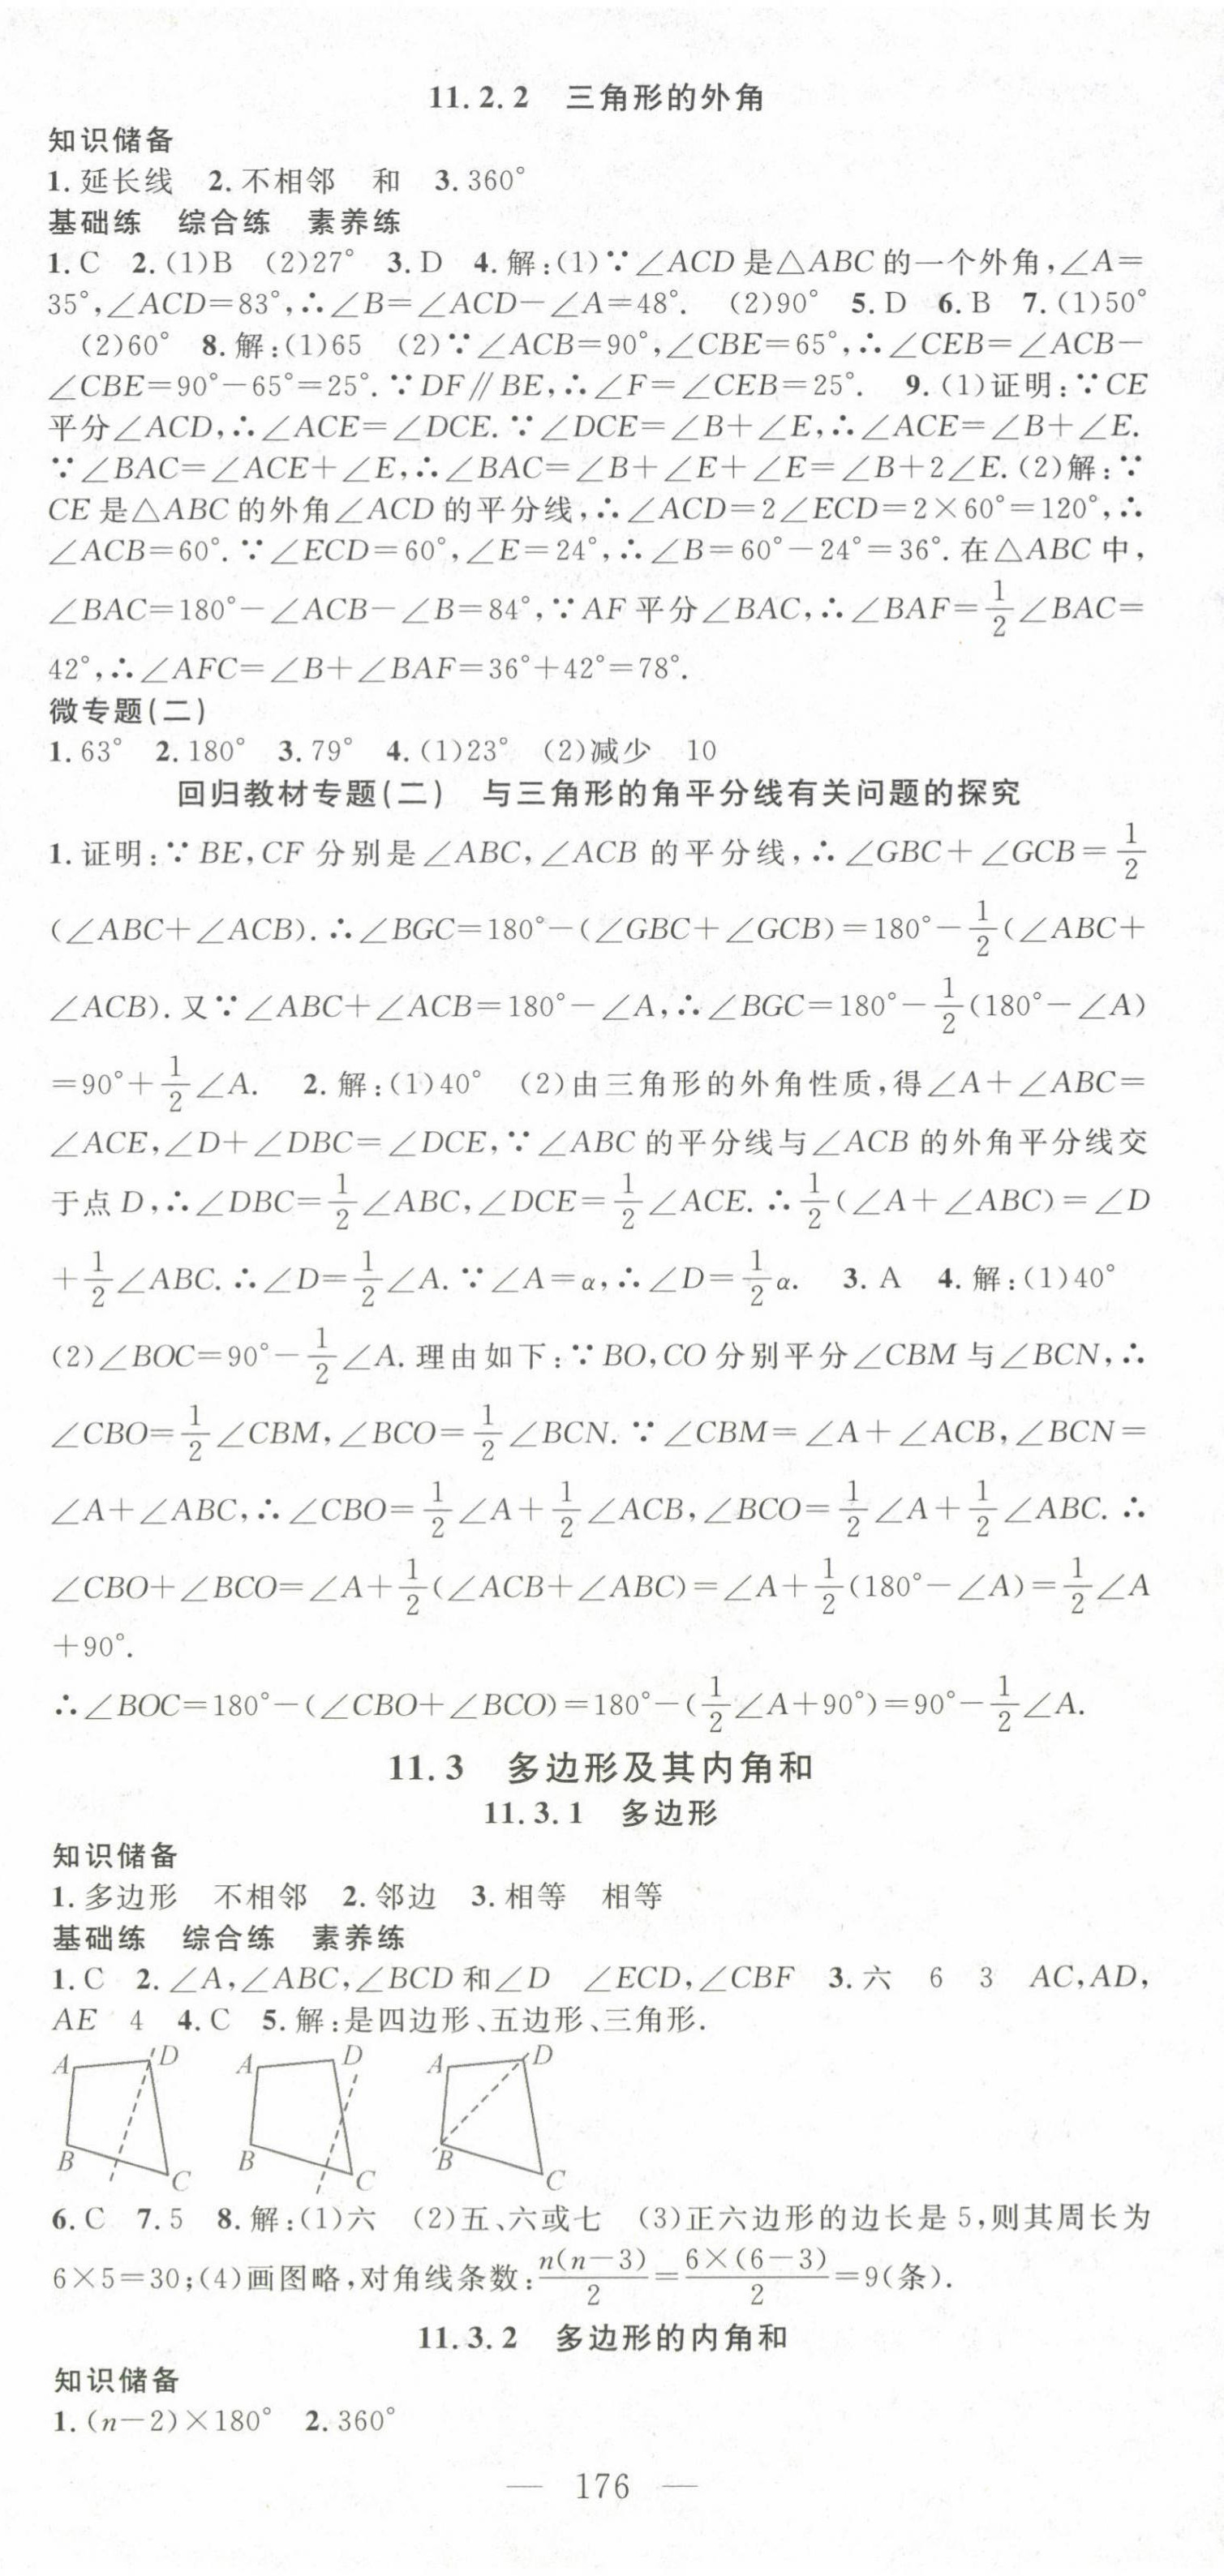 11.2.2 三角形的外角
知识储备
1.延长线 2.不相邻 和 3.360°
基础练 综合练 素养练
1.C 2.(1)B (2)27° 3.D 4.解:(1)∵∠ACD是△ABC的一个外角,∠A=
35°,∠ACD=83°,∴∠B=∠ACD-∠A=48°. (2)90° 5.D 6.B 7.(1)50°
(2)60° 8.解:(1)65 (2)∵∠ACB=90°,∠CBE=65°,∴∠CEB=∠ACB-
∠CBE=90°-65°=25°.∵DF∥BE,∴∠F=∠CEB=25°. 9.(1)证明:∵CE
平分∠ACD,∴∠ACE=∠DCE.∵∠DCE=∠B+∠E,∴∠ACE=∠B+∠E.
∵∠BAC=∠ACE+∠E,∴∠BAC=∠B+∠E+∠E=∠B+2∠E.(2)解:∵
CE是△ABC的外角∠ACD的平分线,∴∠ACD=2∠ECD=2×60°=120°,∴
∠ACB=60°.∵∠ECD=60°,∠E=24°,∴∠B=60°-24°=36°.在△ABC中,
∠BAC=180°-∠ACB-∠B=84°,∵AF平分∠BAC,∴∠BAF=1/2∠BAC=
42°,∴∠AFC=∠B+∠BAF=36°+42°=78°.
微专题(二)
1.63° 2.180° 3.79° 4.(1)23° (2)减少 10
回归教材专题(二) 与三角形的角平分线有关问题的探究
1.证明:∵BE,CF分别是∠ABC,∠ACB的平分线,∴∠GBC+∠GCB=1/2
(∠ABC+∠ACB).∴∠BGC=180°-(∠GBC+∠GCB)=180°-1/2(∠ABC+
∠ACB).又∵∠ABC+∠ACB=180°-∠A,∴∠BGC=180°-1/2(180°-∠A)
=90°+1/2∠A. 2.解:(1)40° (2)由三角形的外角性质,得∠A+∠ABC=
∠ACE,∠D+∠DBC=∠DCE,∵∠ABC的平分线与∠ACB的外角平分线交
于点D,∴∠DBC=1/2∠ABC,∠DCE=1/2∠ACE.∴1/2(∠A+∠ABC)=∠D
+1/2∠ABC.∴∠D=1/2∠A.∵∠A=α,∴∠D=1/2α. 3.A 4.解:(1)40°
(2)∠BOC=90°-1/2∠A.理由如下:∵BO,CO分别平分∠CBM与∠BCN,∴
∠CBO=1/2∠CBM,∠BCO=1/2∠BCN.∵∠CBM=∠A+∠ACB,∠BCN=
∠A+∠ABC,∴∠CBO=1/2∠A+1/2∠ACB,∠BCO=1/2∠A+1/2∠ABC.∴
∠CBO+∠BCO=∠A+1/2(∠ACB+∠ABC)=∠A+1/2(180°-∠A)=1/2∠A
+90°.
∴∠BOC=180°-(∠CBO+∠BCO)=180°-(1/2∠A+90°)=90°-1/2∠A.
11.3 多边形及其内角和
11.3.1 多边形
知识储备
1.多边形 不相邻 2.邻边 3.相等 相等
基础练 综合练 素养练
1.C 2.∠A,∠ABC,∠BCD和∠D ∠ECD,∠CBF 3.六 6 3 AC,AD,
AE 4 4.C 5.解:是四边形、五边形、三角形.
A D A D A D
B C B C B C
6.C 7.5 8.解:(1)六 (2)五、六或七 (3)正六边形的边长是5,则其周长为
6×5=30;(4)画图略,对角线条数:n(n-3)/2=6×(6-3)/2=9(条).
11.3.2 多边形的内角和
知识储备
1.(n-2)×180° 2.360°
— 176 —